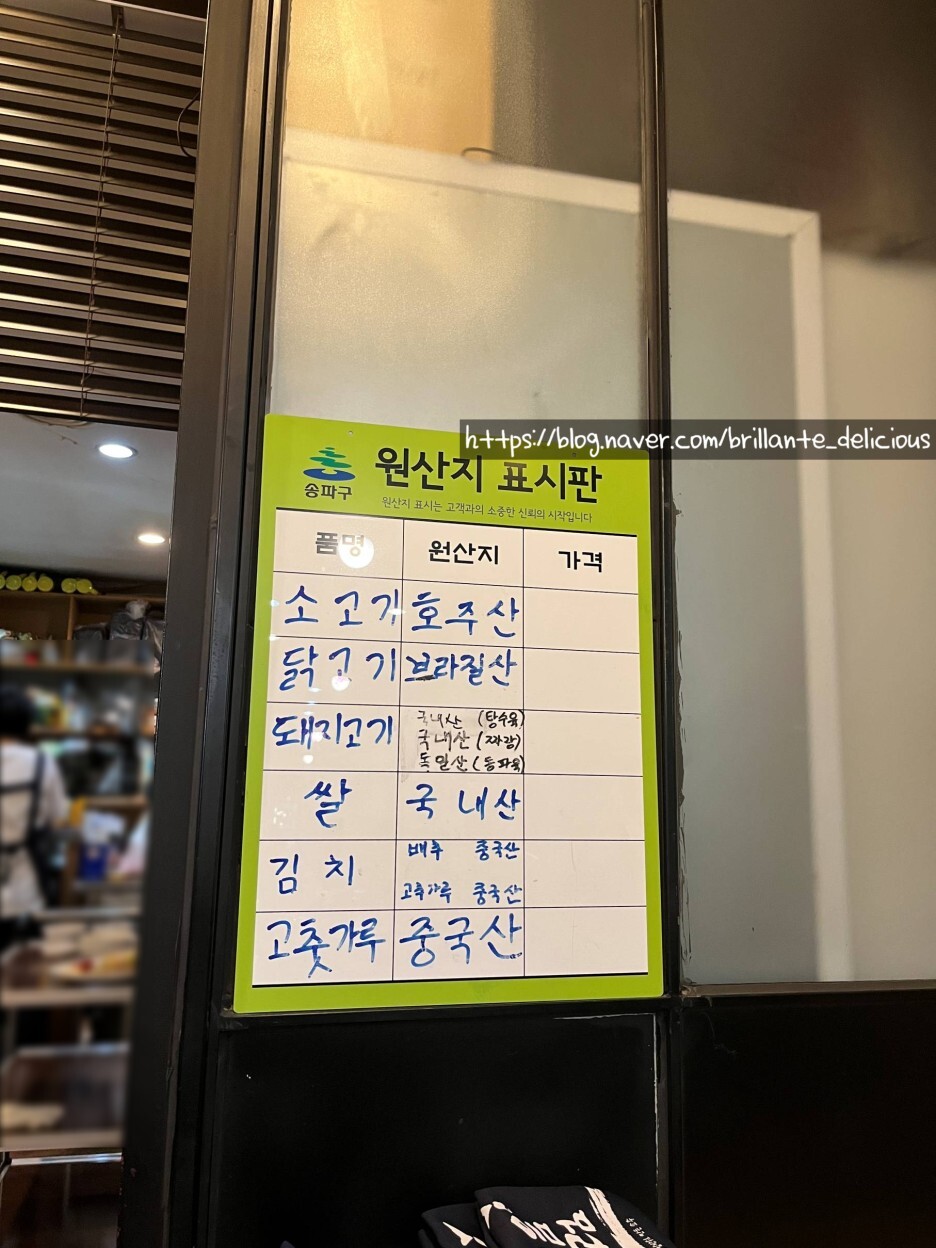 https://blog.naver.com/brillante_delicious
송파구
원산지 표시판
원산지 표시는 고객과의 소중한 신뢰의 시작입니다
품명 원산지 가격
소고기 호주산
닭고기 브라질산
돼지고기 국내산 (탕수육)
국내산 (짜장)
독일산 (동파육)
쌀 국내산
김치 배추 중국산
고춧가루 중국산
고춧가루 중국산